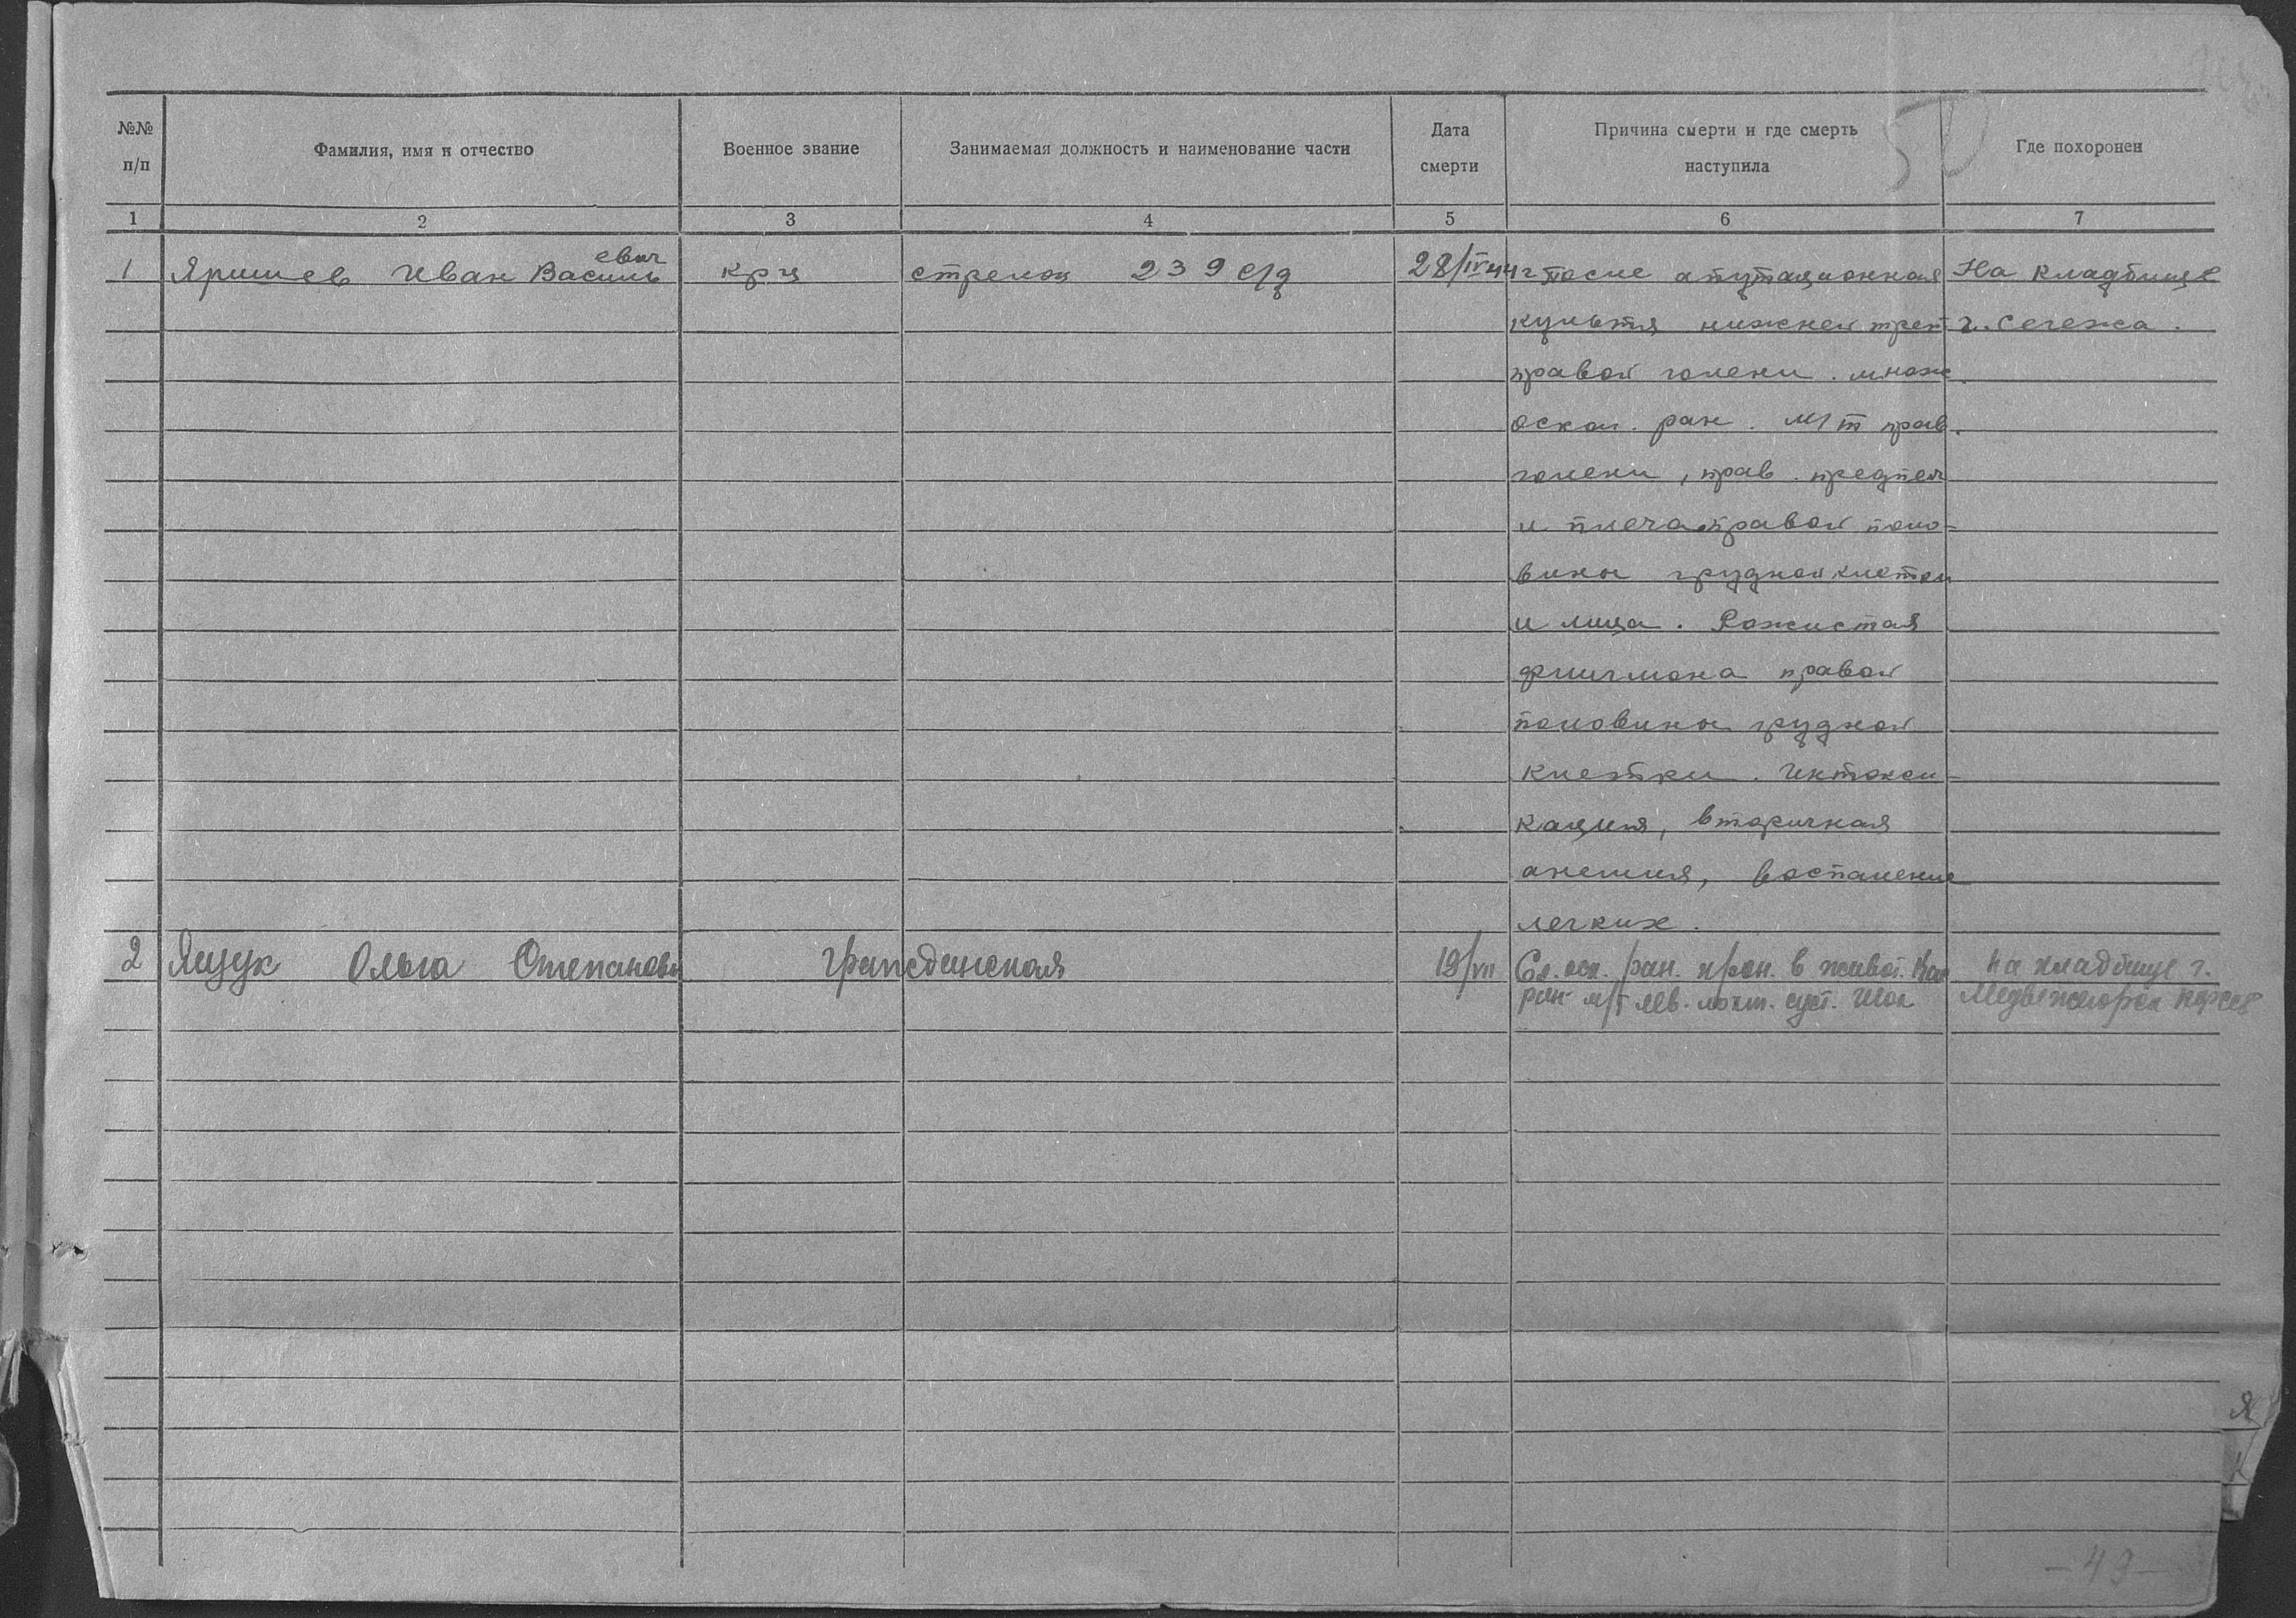 №№ п/п
Фамилия, имя и отчество
Военное звание
Занимаемая должность и наименование части
Дата смерти
Причина смерти и где смерть наступила
Где похоронен
1 2 3 4 5 6 7
50
1 Яришев Иван Васильевич крц стрелок 239 с/д 28/IV 44 г После апутационная На кладбище
культя нижней трет г. Сегежа.
правой голени. множ.
оскол. ран. м/т прав.
голени, прав. предпеч
и плеча правой поло-
вины грудной клетки
и лица. Рожистая
флегмона правой
половины грудной
клетки. Интокси-
кация, вторичная
анемия, воспаление
легких.
2 Ящук Ольга Степановн гражданская 19/VII Сл. оск. ран. прон. в живот. на кладбище г.
ран. м/т лев. локт. суст. Шок Медвежьгорск
Я
К
- 49 -